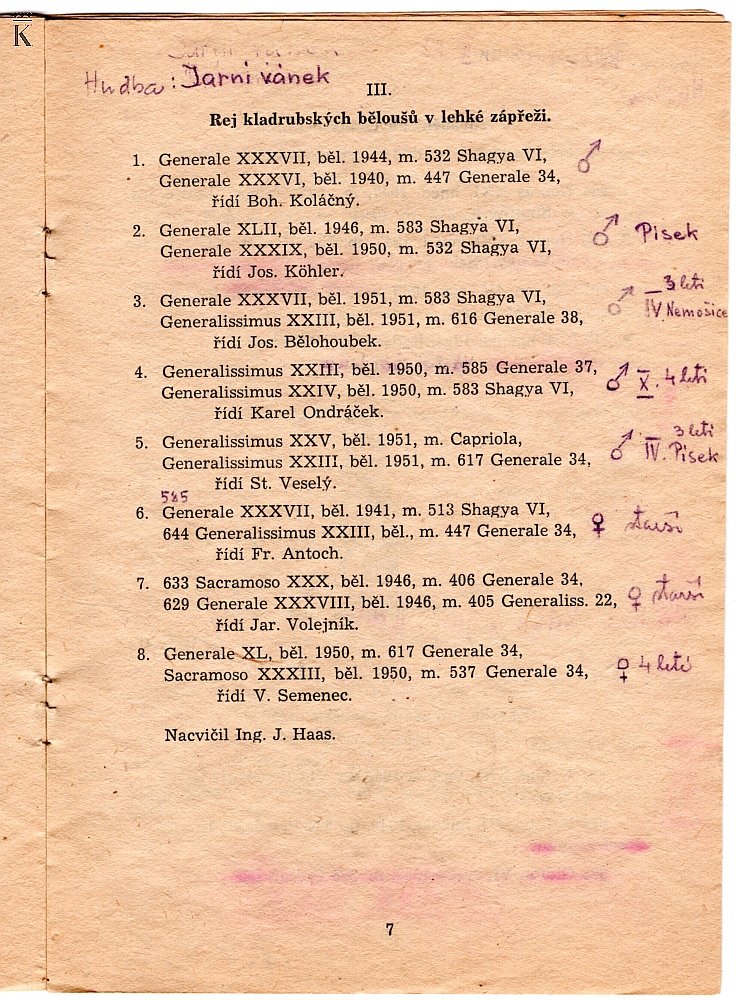 K
Hudba: Jarní vánek
III.
Rej kladrubských běloušů v lehké zápřeži.
1. Generale XXXVII, běl. 1944, m. 532 Shagya VI, ♂
Generale XXXVI, běl. 1940, m. 447 Generale 34,
řídí Boh. Koláčný.
2. Generale XLII, běl. 1946, m. 583 Shagya VI, ♂ Písek
Generale XXXIX, běl. 1950, m. 532 Shagya VI,
řídí Jos. Köhler.
3. Generale XXXVII, běl. 1951, m. 583 Shagya VI, ♂ 3 letí
Generalissimus XXIII, běl. 1951, m. 616 Generale 38, IV Nemošice
řídí Jos. Bělohoubek.
4. Generalissimus XXIII, běl. 1950, m. 585 Generale 37, ♂ X. 4 letí
Generalissimus XXIV, běl. 1950, m. 583 Shagya VI,
řídí Karel Ondráček.
5. Generalissimus XXV, běl. 1951, m. Capriola, ♂ 3 letí
Generalissimus XXIII, běl. 1951, m. 617 Generale 34, IV. Písek
řídí St. Veselý.
585
6. Generale XXXVII, běl. 1941, m. 513 Shagya VI, ♀ starší
644 Generalissimus XXIII, běl., m. 447 Generale 34,
řídí Fr. Antoch.
7. 633 Sacramoso XXX, běl. 1946, m. 406 Generale 34,
629 Generale XXXVIII, běl. 1946, m. 405 Generaliss. 22, ♀ starší
řídí Jar. Volejník.
8. Generale XL, běl. 1950, m. 617 Generale 34, ♀ 4 letí
Sacramoso XXXIII, běl. 1950, m. 537 Generale 34,
řídí V. Semenec.
Nacvičil Ing. J. Haas.
7